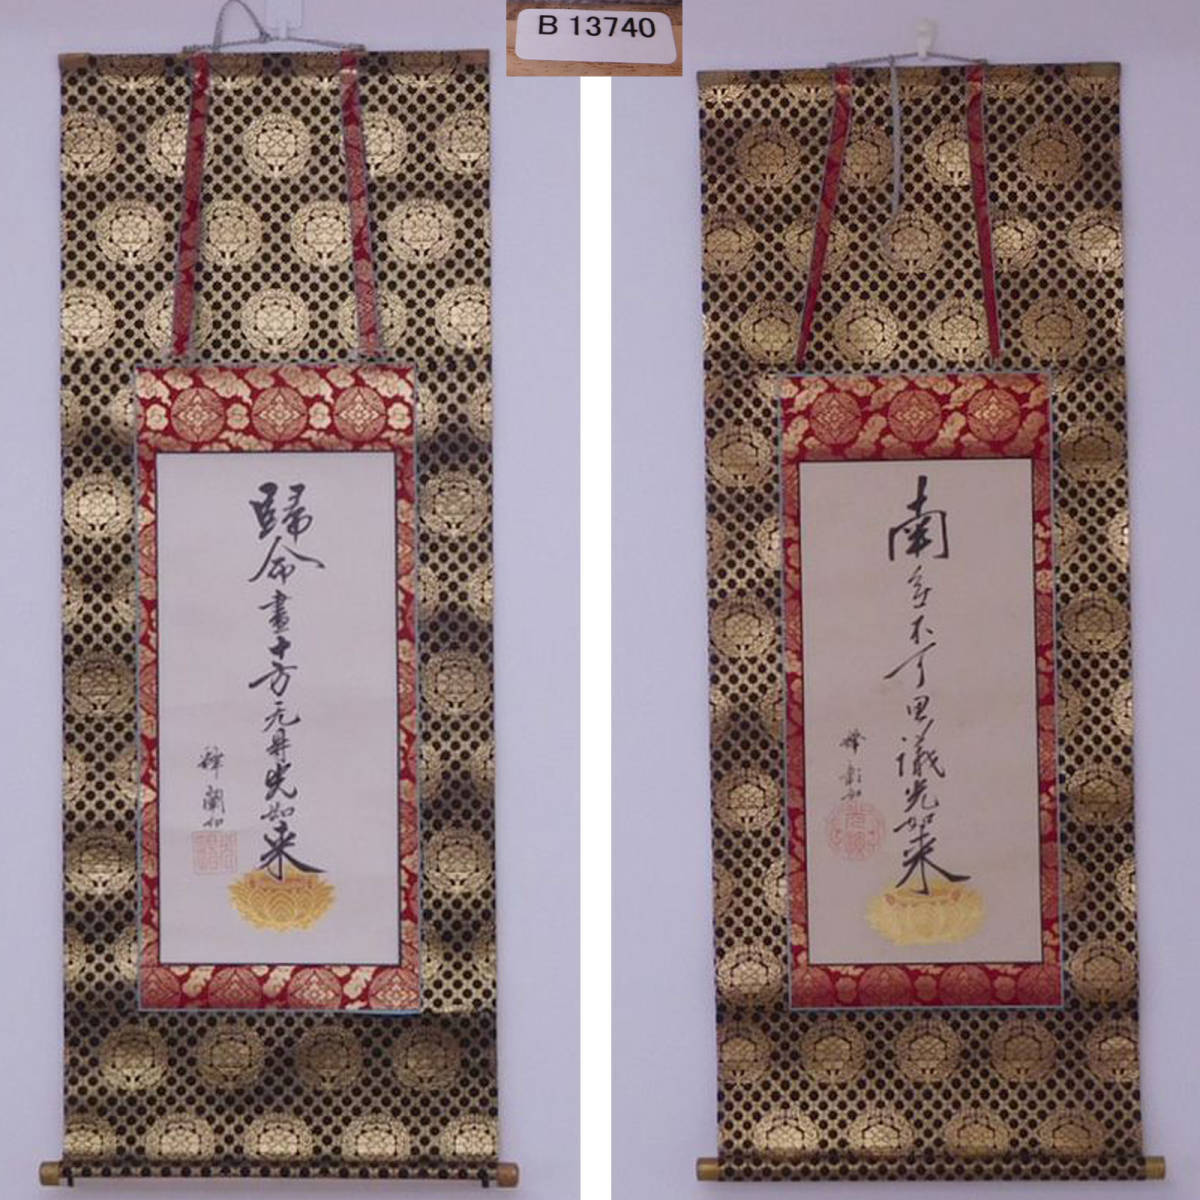 B 13740
歸命盡十方无㝵光如来
釋闡如
南无不可思議光如来
釋彰如